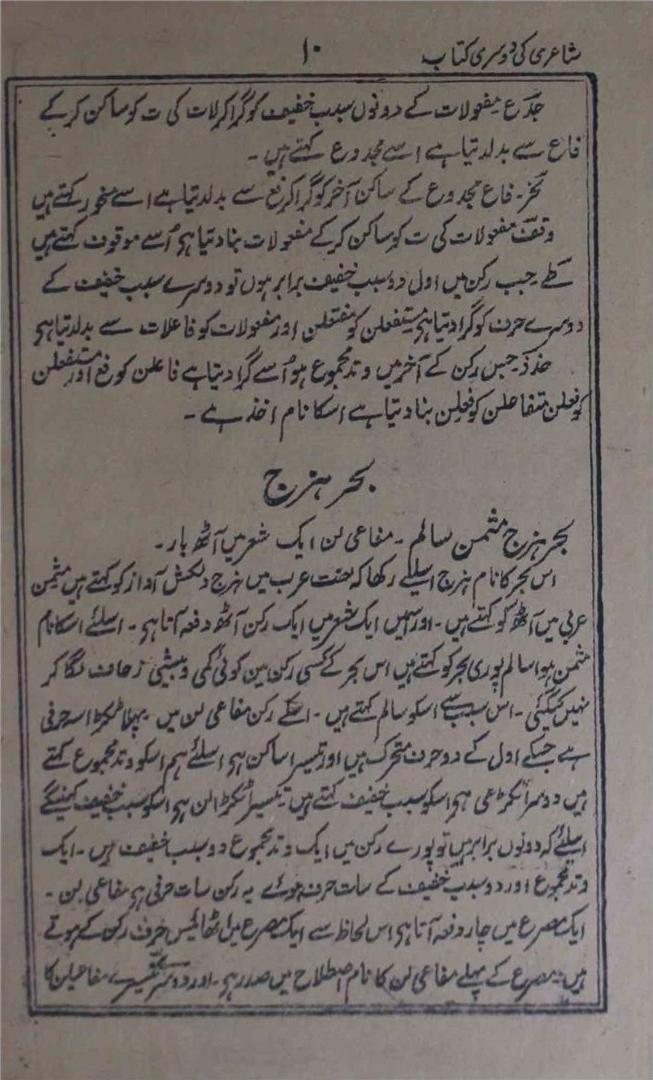 شاعری کی دوسری کتاب
۱۰
جدع مفعولات کے دونوں سبب خفیف کو گرا کر لات کی ت کو ساکن کر کے
فاع سے بدلدیتا ہے اسے مجدوع کہتے ہیں ۔
نحر ۔ فاع مجدوع کے ساکن آخر کو گرا کر فع سے بدلدیتا ہے اسے منحور کہتے ہیں
وقف مفعولات کی ت کو ساکن کر کے مفعولات بنا دیتا ہی اُسے موقوف کہتے ہیں
طے جب رکن میں اول دو سبب خفیف برابر ہوں تو دوسرے سبب خفیف کے
دوسرے حرف کو گرا دیتا ہی مستفعلن کو مفتعلن اور مفعولات کو فاعلات سے بدلدیتا ہی
حذذ جس رکن کے آخر میں وتد مجموع ہو اُسے گرا دیتا ہے فاعلن کو فع اور مستفعلن
کو فعلن متفاعلن کو فعِلن بنا دیتا ہے اسکا نام اخذ ہے ۔
بحر ہزج
بحر ہزج مثمن سالم ۔ مفاعی لن ایک شعر میں آٹھ بار ۔
اس بحر کا نام ہزج اسلئے رکھا کہ لغت عرب میں ہزج دلکش آواز کو کہتے ہیں مثمن
عربی میں آٹھ کو کہتے ہیں ۔ اور اسمیں ایک شعر میں ایک رکن آٹھ دفعہ آتا ہی ۔ اسلئے اسکا نام
مثمن ہوا سالم پوری بحر کو کہتے ہیں اس بحر کے کسی رکن مین کوئی کمی و بیشی زحاف لگا کر
نہیں کیگئی ۔ اس سبب سے اسکو سالم کہتے ہیں ۔ اسکے رکن مفاعی لن میں ۔ پہلا ٹکڑا سہ حرفی
ہے جسکے اول کے دو حرف متحرک ہیں اور تیسرا ساکن ہی اسلئے ہم اسکو وتد مجموع کہتے
ہیں دوسرا ٹکڑا عی ہی اسکو سبب خفیف کہتے ہیں تیسرا ٹکڑا لن ہی اسکو سبب خفیف کہینگے
اسلئے کہ دونوں برابر ہیں تو پورے رکن میں ایک وتد مجموع دو سبب خفیف ہیں ۔ ایک
وتد مجموع اور دو سبب خفیف کے سات حرف ہوئے یہ رکن سات حرفی ہی مفاعی لن ۔
ایک مصرع میں چار دفعہ آتا ہی اس لحاظ سے ایک مصرع میں اٹھائیس حرف رکن کے ہوتے
ہیں ۔ مصرع کے پہلے مفاعی لن کا نام اصطلاح میں صدر ہی ۔ اور دوسرے تیسرے مفاعیلن کا